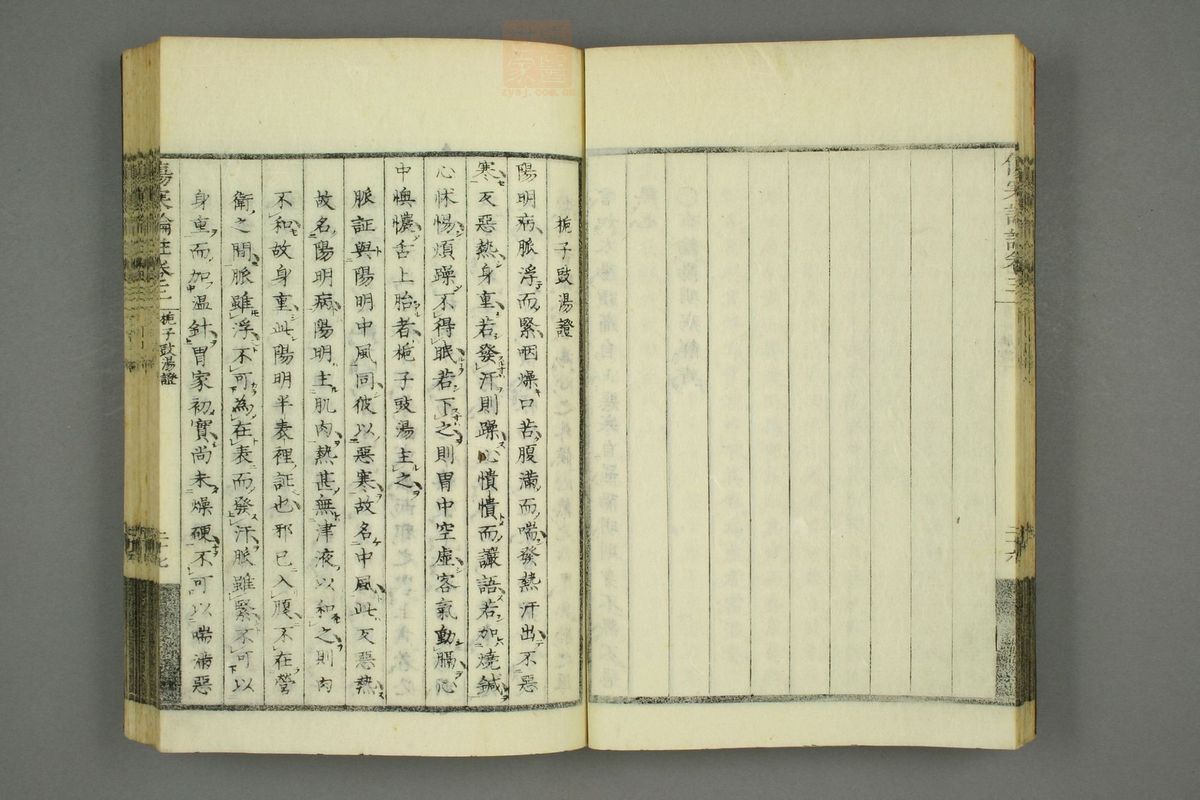 傷寒論註卷三
二十六
梔子豉湯證
陽明病脈浮而緊咽燥口苦腹滿而喘發熱汗出不惡
寒反惡熱身重若發汗則躁心憒憒而讝語若加燒鍼
心怵惕煩躁不得眠若下之則胃中空虛客氣動膈心
中懊憹舌上胎者梔子豉湯主之
脈証與陽明中風同彼以惡寒故名中風此反惡熱
故名陽明病陽明主肌肉熱甚無津液以和之則肉
不和故身重此陽明半表裡証也邪已入腹不在營
衛之間脈雖浮不可為在表而發汗脈雖緊不可以
身重而加温針胃家初實尚未燥硬不可以喘滿惡
傷寒論註卷三
梔子豉湯證
二十七
zysj.com.cn